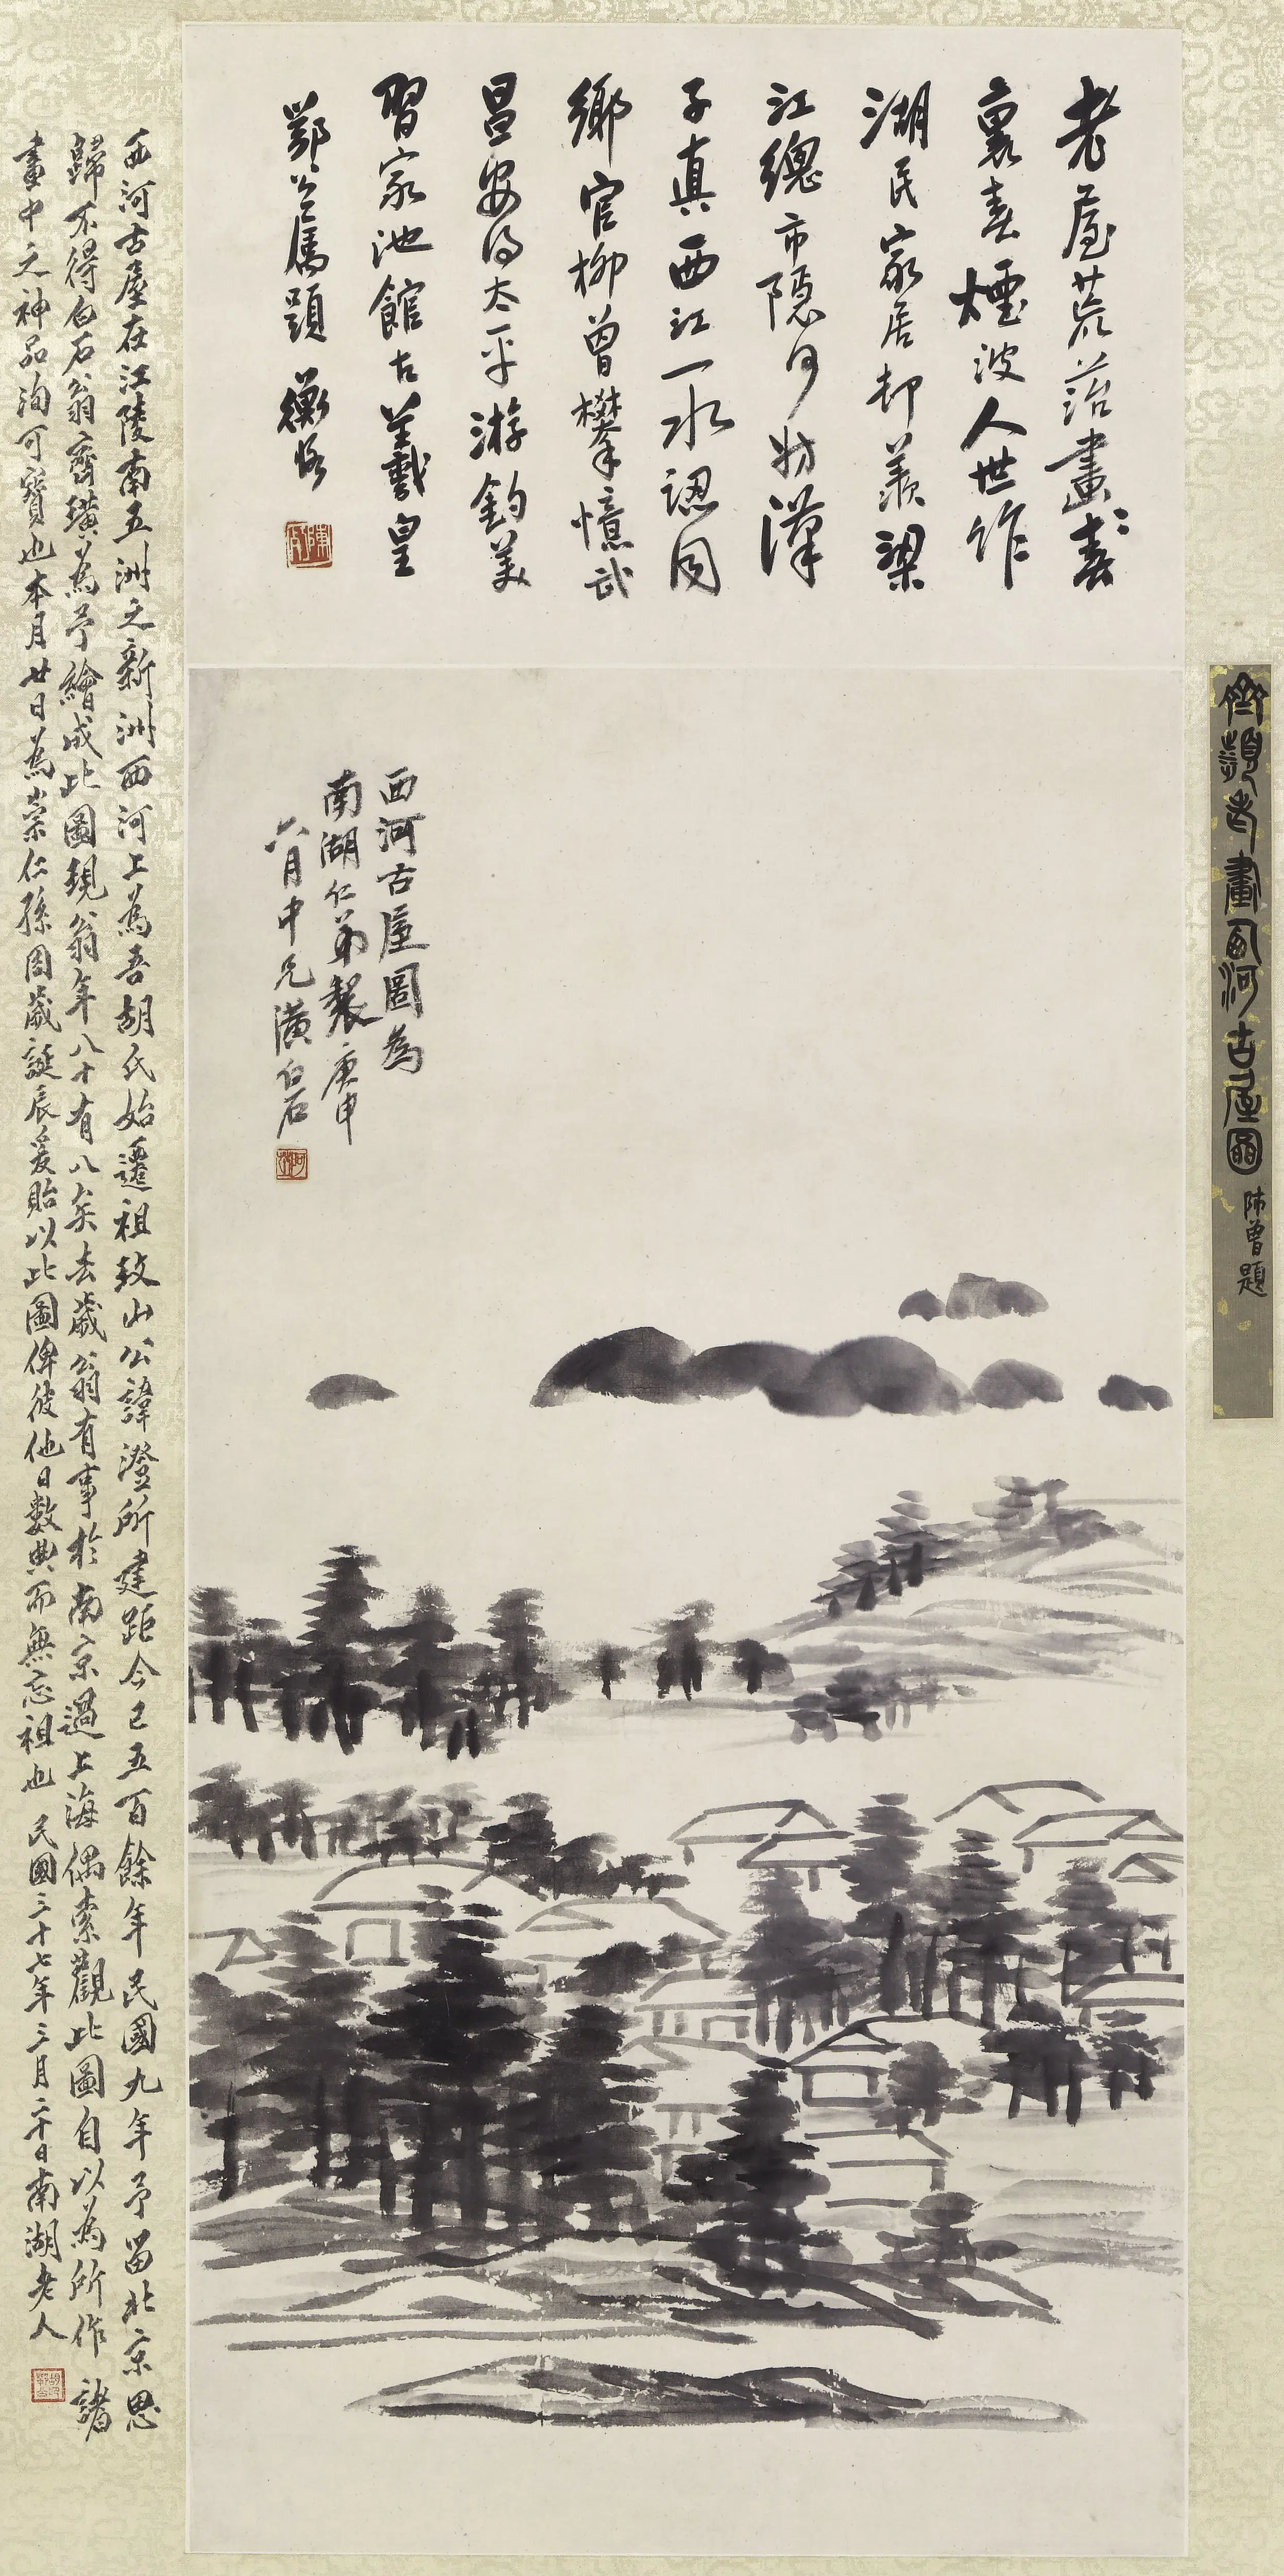 老屋荒茫畫裏
裏春煙波人世作
湖民家居却羨梁
江總市隱何妨漢
子真西江一水認同
鄉官柳曾攀憶武
昌安得太平游釣美
習家池館古羲皇
鄂公屬題 衡恪
西河古屋圖為
南湖仁弟製庚申
六月中兄璜白石
齊璜老畫西河古屋圖 師曾題
西河古屋在江陵南五洲之新洲西河上為吾胡氏始遷祖致山公諱澄所建距今已五百餘年民國九年予留北京思
歸不得白石翁齊璜為予繪成此圖現翁年八十有八矣去歲翁有事於南京過上海偶索觀此圖自以為所作諸
畫中之神品洵可寶也本月廿日為崇仁孫周歲誕辰爰貽以此圖俾彼他日數典而無忘祖也 民國三十七年三月二十日南湖老人